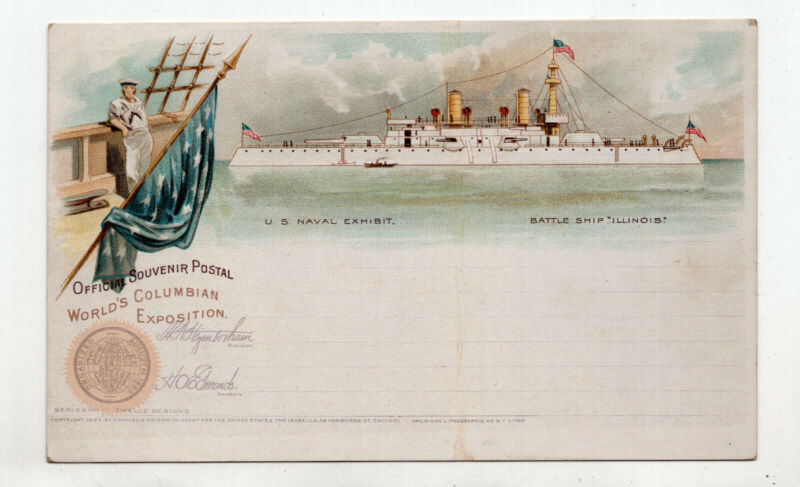 U. S. NAVAL EXHIBIT.
BATTLE SHIP "ILLINOIS."
OFFICIAL SOUVENIR POSTAL
WORLD'S COLUMBIAN
EXPOSITION.
President.
Secretary.
SERIES Nº1, TWELVE DESIGNS
COPYRIGHT 1893, BY CHARLES W. GOLDSMITH, AGENT FOR THE UNITED STATES, THE ISABELLA, 48 VAN BUREN ST. CHICAGO. AMERICAN LITHOGRAPHIC CO. N.Y. LITHO.